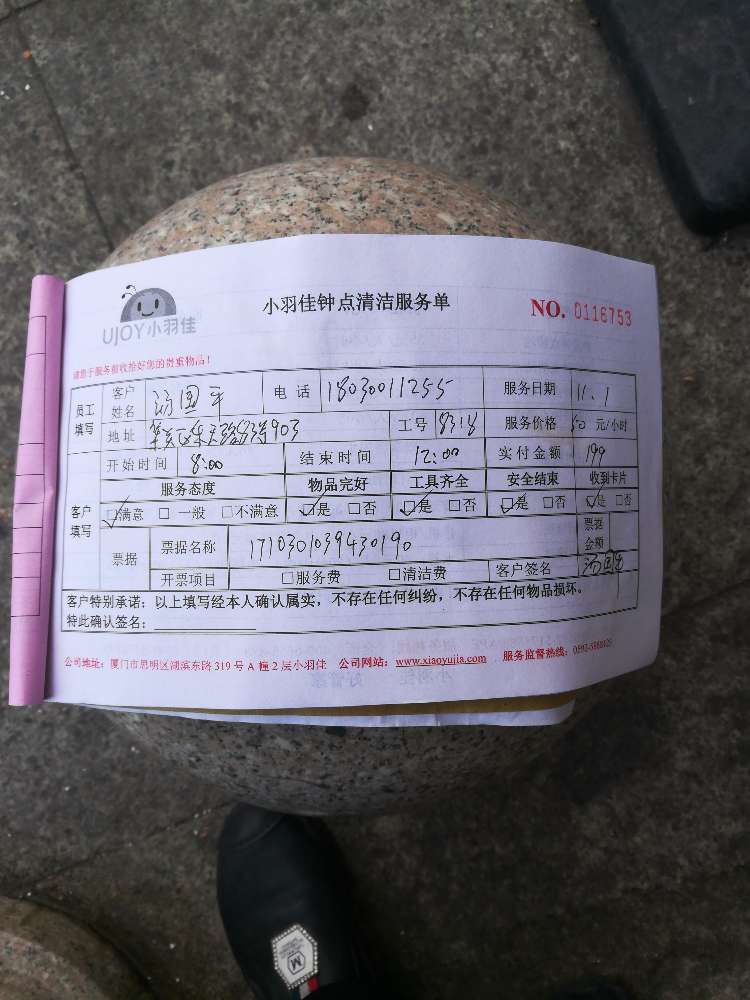 UJOY小羽佳
小羽佳钟点清洁服务单
NO. 0116753
请您于服务前收拾好您的贵重物品!
员工填写 客户姓名 汤国平 电话 18030011255 服务日期 11.1
地址 903 工号 8318 服务价格 50 元/小时
开始时间 8:00 结束时间 12:00 实付金额 199
客户填写 服务态度 物品完好 工具齐全 安全结束 收到卡片
☑满意 □一般 □不满意 ☑是 □否 ☑是 □否 ☑是 □否 ☑是 □否
票据 票据名称 1710301039430190 票据金额
开票项目 □服务费 □清洁费 客户签名
客户特别承诺:以上填写经本人确认属实,不存在任何纠纷,不存在任何物品损坏。
特此确认签名:
公司地址:厦门市思明区湖滨东路319号A幢2层小羽佳 公司网站:www.xiaoyujia.com 服务监督热线: